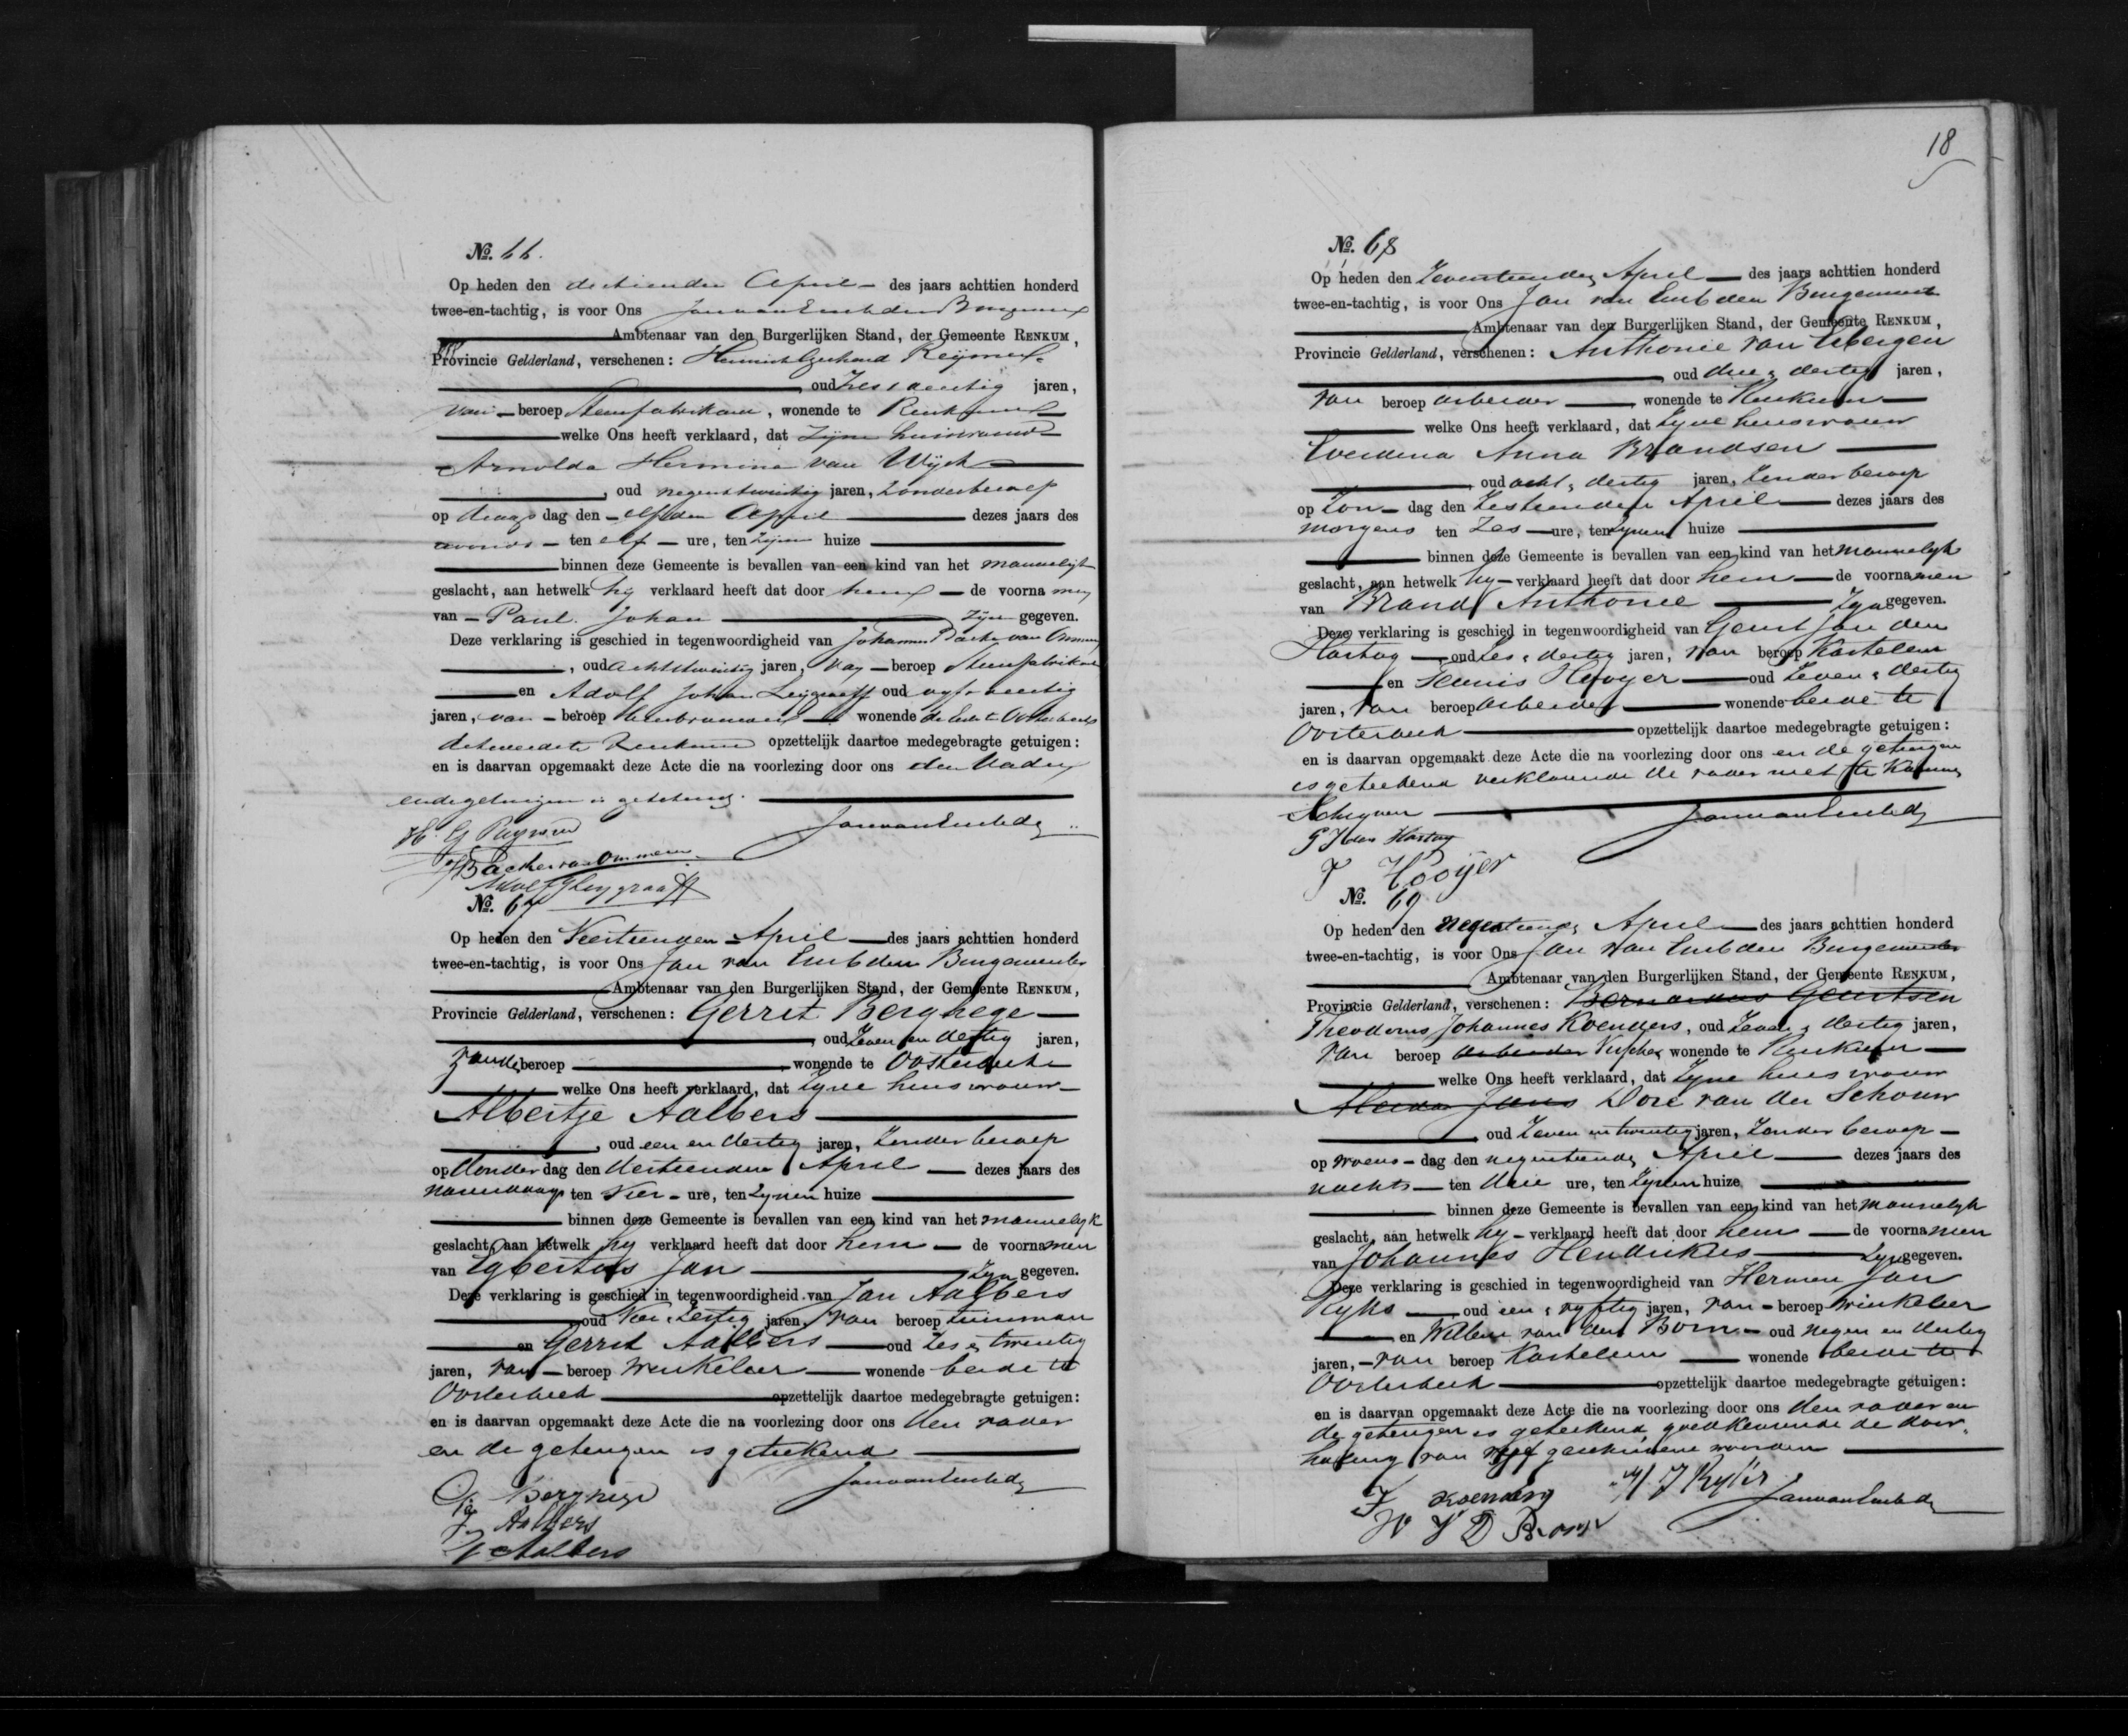 No. 66.
Op heden den dertienden April – des jaars achttien honderd
twee-en-tachtig, is voor Ons Jan van Embden Burgemeester
Ambtenaar van den Burgerlijken Stand, der Gemeente RENKUM,
Provincie Gelderland, verschenen: Hermen Gerhard Reymes
oud Zes en dertig jaren,
van – beroep Steenfabrikant, wonende te Renkum
welke Ons heeft verklaard, dat Zijne huisvrouw
Arnolda Hermina van Wijck
, oud negen twintig jaren, Zonder beroep
op dinsdag den – elfden April dezes jaars des
avonds – ten elf – ure, ten Zijnen huize
binnen deze Gemeente is bevallen van een kind van het mannelijk
geslacht, aan hetwelk hij verklaard heeft dat door hem – de voornamen
van – Paul. Johan Zijn gegeven.
Deze verklaring is geschied in tegenwoordigheid van Johannes Backer van Ommeren
, oud acht twintig jaren, van – beroep Steenfabrikant
en Adolf Johan Leijgraaff oud vijf en
jaren, van – beroep wonende de Eerste te Oosterbeek
de tweede te Renkum opzettelijk daartoe medegebragte getuigen:
en is daarvan opgemaakt deze Acte die na voorlezing door ons den Vader
en de getuigen is geteekend.
H. G. Reymes Jan van Embden
J Backer van Ommeren
Adolf J Leijgraaff
No. 67
Op heden den Veertienden April des jaars achttien honderd
twee-en-tachtig, is voor Ons Jan van Embden Burgemeester
Ambtenaar van den Burgerlijken Stand, der Gemeente RENKUM,
Provincie Gelderland, verschenen: Gerrit Berghege
oud Zeven en dertig jaren,
Zonder beroep wonende te Oosterbeek
welke Ons heeft verklaard, dat Zyne huisvrouw
Albertje Aalbers
, oud een en dertig jaren, Zonder beroep
op Donder dag den dertienden April dezes jaars des
namiddags ten Vier – ure, ten Zynen huize
binnen deze Gemeente is bevallen van een kind van het mannelyk
geslacht, aan hetwelk hy verklaard heeft dat door hem – de voornamen
van Egbertus Jan Zyn gegeven.
Deze verklaring is geschied in tegenwoordigheid van Jan Aalbers
oud Vier Zestig jaren, van beroep tuinman
en Gerrit Aalbers oud Zes & twintig
jaren, van – beroep Winkelier wonende beide te
Oosterbeek opzettelijk daartoe medegebragte getuigen:
en is daarvan opgemaakt deze Acte die na voorlezing door ons den vader
en de getuigen is geteekend
G Berghege Jan van Embden
J Aalbers
G Aalbers
18
No. 68
Op heden den Zeventienden April des jaars achttien honderd
twee-en-tachtig, is voor Ons Jan van Embden Burgemeester
Ambtenaar van den Burgerlijken Stand, der Gemeente RENKUM,
Provincie Gelderland, verschenen: Anthonie van Bergen
oud drie & dertig jaren,
van beroep arbeider wonende te Renkum
welke Ons heeft verklaard, dat Zyne huisvrouw
Everdina Anna Brandsen
oud acht & dertig jaren, Zonder beroep
op Zon – dag den Zestienden April dezes jaars des
morgens ten Zes – ure, ten Zynen huize
binnen deze Gemeente is bevallen van een kind van het mannelyk
geslacht, aan hetwelk hy – verklaard heeft dat door hem – de voornamen
van Brand Anthonie Zyn gegeven.
Deze verklaring is geschied in tegenwoordigheid van Gerrit Jan den
Hartog oud Zes & dertig jaren, van beroep Kastelein
en Teunis Hooyer oud Zeven & dertig
jaren, van beroep arbeider wonende beide te
Oosterbeek opzettelijk daartoe medegebragte getuigen:
en is daarvan opgemaakt deze Acte die na voorlezing door ons en de getuigen
is geteekend verklarende de vader niet te Kunnen
Schryven Jan van Embden
G J den Hartog
T Hooijer
No. 69
Op heden den negentienden April des jaars achttien honderd
twee-en-tachtig, is voor Ons Jan van Embden Burgemeester
Ambtenaar van den Burgerlijken Stand, der Gemeente RENKUM,
Provincie Gelderland, verschenen: Bernardus Geurtsen
Theodorus Johannes Koenders, oud Zeven & dertig jaren,
van beroep arbeider Visscher wonende te Renkum
welke Ons heeft verklaard, dat Zyne huisvrouw
Aleida Jans Dore van der Schouw
oud Zeven en twintig jaren, Zonder beroep –
op woens – dag den negentienden April dezes jaars des
nachts ten drie ure, ten Zynen huize
binnen deze Gemeente is bevallen van een kind van het mannelyk
geslacht, aan hetwelk hy – verklaard heeft dat door hem de voornamen
van Johannes Hendrikus Zyn gegeven.
Deze verklaring is geschied in tegenwoordigheid van Hermen Jan
Ryks oud een & vyftig jaren, van – beroep winkelier
en Willem van den Born – oud negen en dertig
jaren, – van beroep Kastelein wonende beide te
Oosterbeek opzettelijk daartoe medegebragte getuigen:
en is daarvan opgemaakt deze Acte die na voorlezing door ons den vader en
de getuigen is geteekend, goedkeurende de door-
haling van vyf geschrevene woorden
T Koenders H J Ryks Jan van Embden
W V D Born